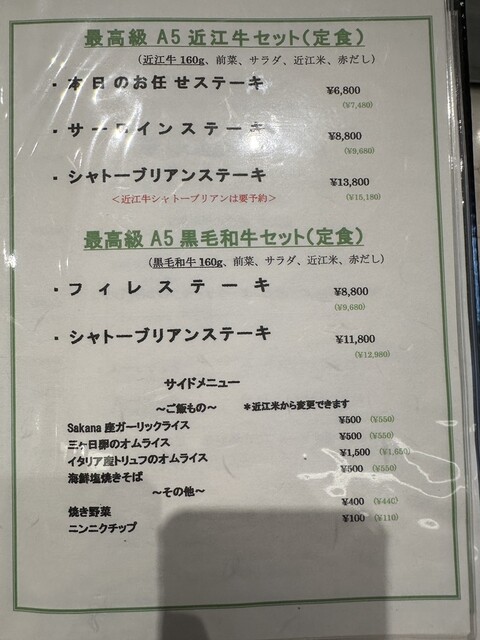 最高級 A5 近江牛セット(定食)
(近江牛160g、前菜、サラダ、近江米、赤だし)
・本日のお任せステーキ ¥6,800
(¥7,480)
・サーロインステーキ ¥8,800
(¥9,680)
・シャトーブリアンステーキ ¥13,800
<近江牛シャトーブリアンは要予約> (¥15,180)
最高級 A5 黒毛和牛セット(定食)
(黒毛和牛160g、前菜、サラダ、近江米、赤だし)
・フィレステーキ ¥8,800
(¥9,680)
・シャトーブリアンステーキ ¥11,800
(¥12,980)
サイドメニュー
～ご飯もの～ *近江米から変更できます
Sakana 座ガーリックライス ¥500 (¥550)
三ヶ日卵のオムライス ¥500 (¥550)
イタリア産トリュフのオムライス ¥1,500 (¥1,650)
海鮮塩焼きそば ¥500 (¥550)
～その他～
焼き野菜 ¥400 (¥440)
ニンニクチップ ¥100 (¥110)